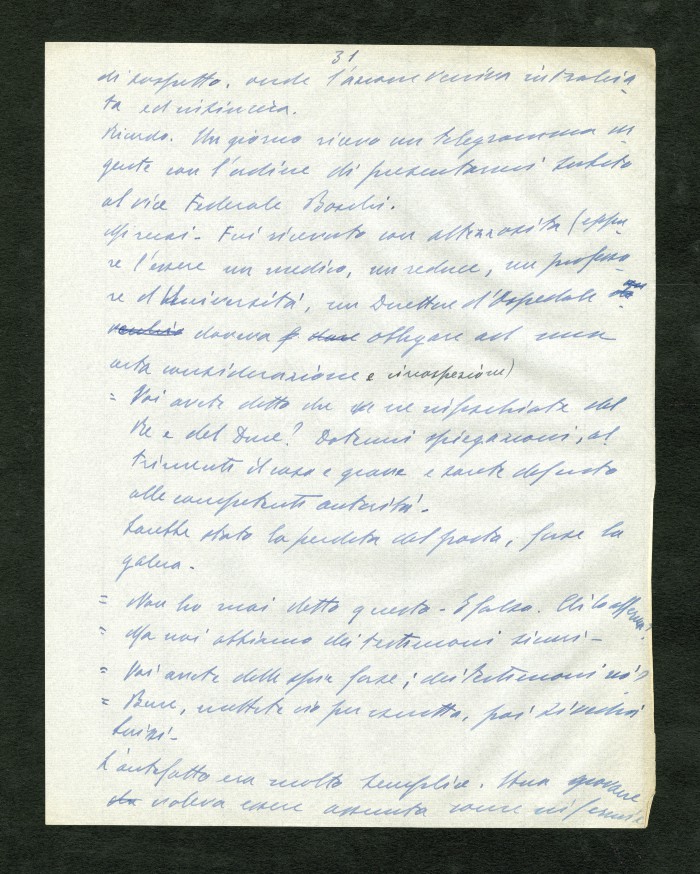 31
di sospetto, onde l'azione veniva intralcia-
ta ed insincera.
Ricordo. Un giorno ricevo un telegramma ur
gente con l'ordine di presentarmi subito
al vice Federale Boschi.
Mi recai - Fui ricevuto con altezzosità (eppu
re l'essere un medico, un reduce, un professo-
re d'Università, un Direttore d'Ospedale
doveva obbligare ad una
certa considerazione e circospezione)
= Voi avete detto che ve ne infischiate del
Re e del Duce? Datemi spiegazioni, al
trimenti il caso è grave e sarete deferito
alle competenti autorità -
Sarebbe stato la perdita del posto, forse la
galera -
= Non ho mai detto questo - È falso. Chi lo afferma?
= Ma noi abbiamo dei testimoni sicuri -
= Voi avete delle spie forse; dei testimoni no!
= Bene, mettete ciò per iscritto, poi
L'antefatto era molto semplice. Una giovane
voleva essere assunta come infermie